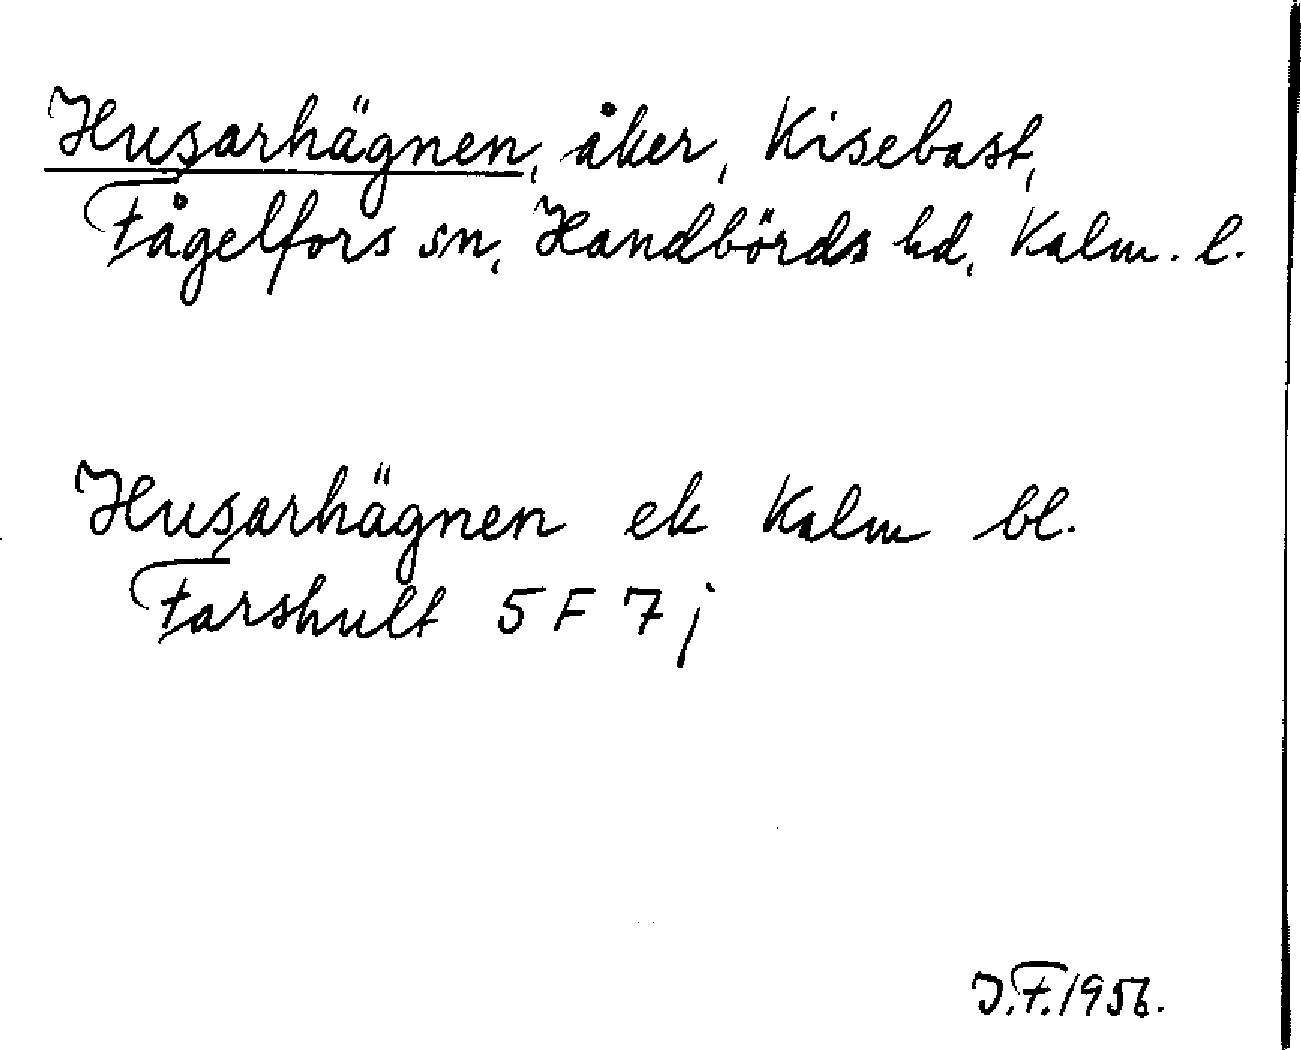 Husarhägnen, åker, Kisebast,
Fågelfors sn, Handbörds hd, Kalm. l.
Husarhägnen ek Kalm bl.
Farshult 5 F 7 j
J.F. 1956.